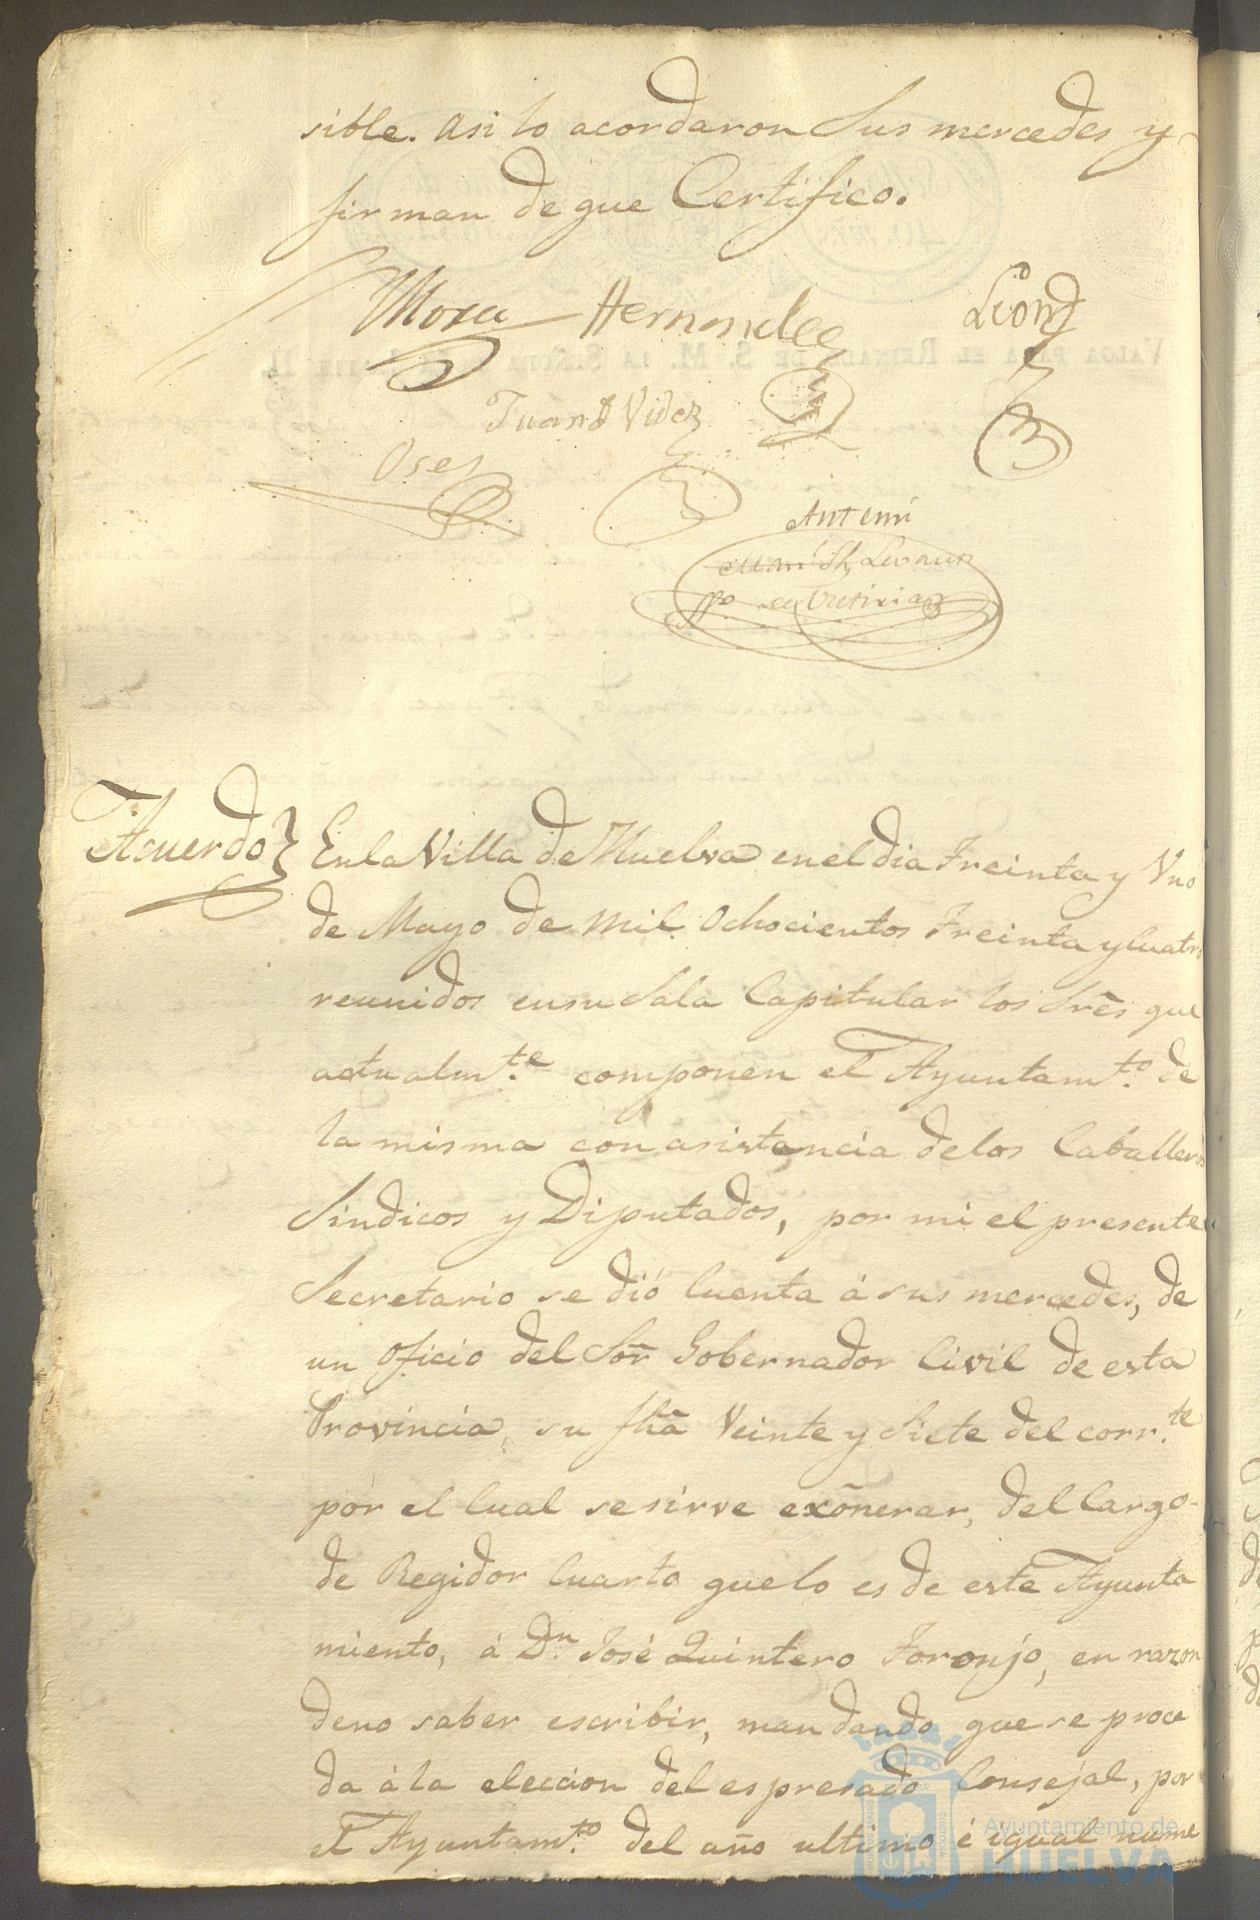 sible. Asi lo acordaron Sus mercedes y
firman de que Certifico.
Mora Hernandez Leon
Juan Videz
Oses
Antemi
Acuerdo} En la Villa de Huelva en el dia Treinta y Uno
de Mayo de mil Ochocientos Treinta y Cuatro
reunidos en su Sala Capitular los Sres que
actualmte. componen el Ayuntamto. de
la misma con asistencia de los Caballeros
Sindicos y Diputados, por mi el presente
Secretario se dió Cuenta á sus mercedes, de
un Oficio del Sor Gobernador Civil de esta
Provincia, su fha Veinte y Siete del corrte.
por el Cual se sirve exonerar, del Cargo
de Regidor Cuarto que lo es de este Ayunta
miento, á Dn. José Quintero Toronjo, en razon
de no saber escribir, mandando que se proce
da á la eleccion del espresado Consejal, por
el Ayuntamto. del año ultimo é igual nume
Ayuntamiento de
HUELVA